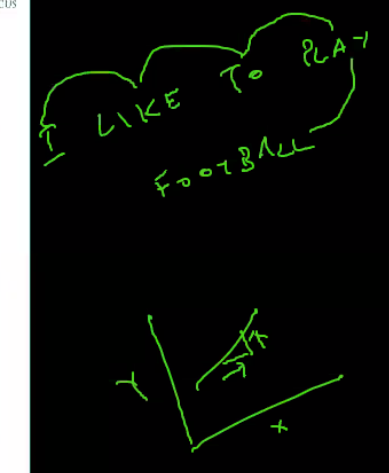 CUS
I LIKE TO PLAY
FOOTBALL
Y
X